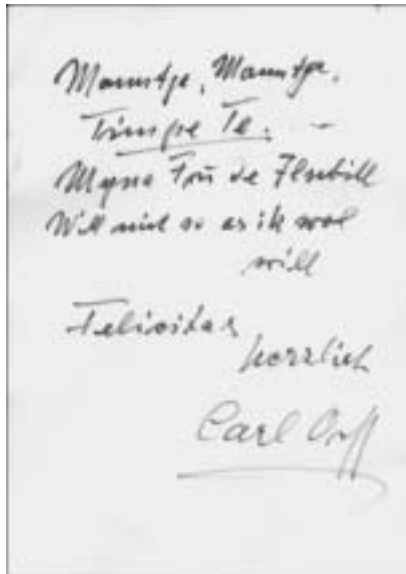 Manntje, Manntje,
Timpe Te. –
Myne Fru de Ilsebill
Will nich so as ik wol
will
Felicitas
herzlich
Carl Orff